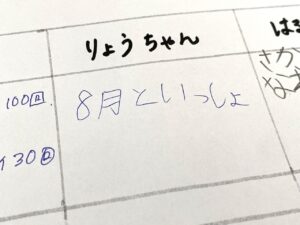 りょうちゃん
はる
100回
8月といっしょ
さか
など
30回